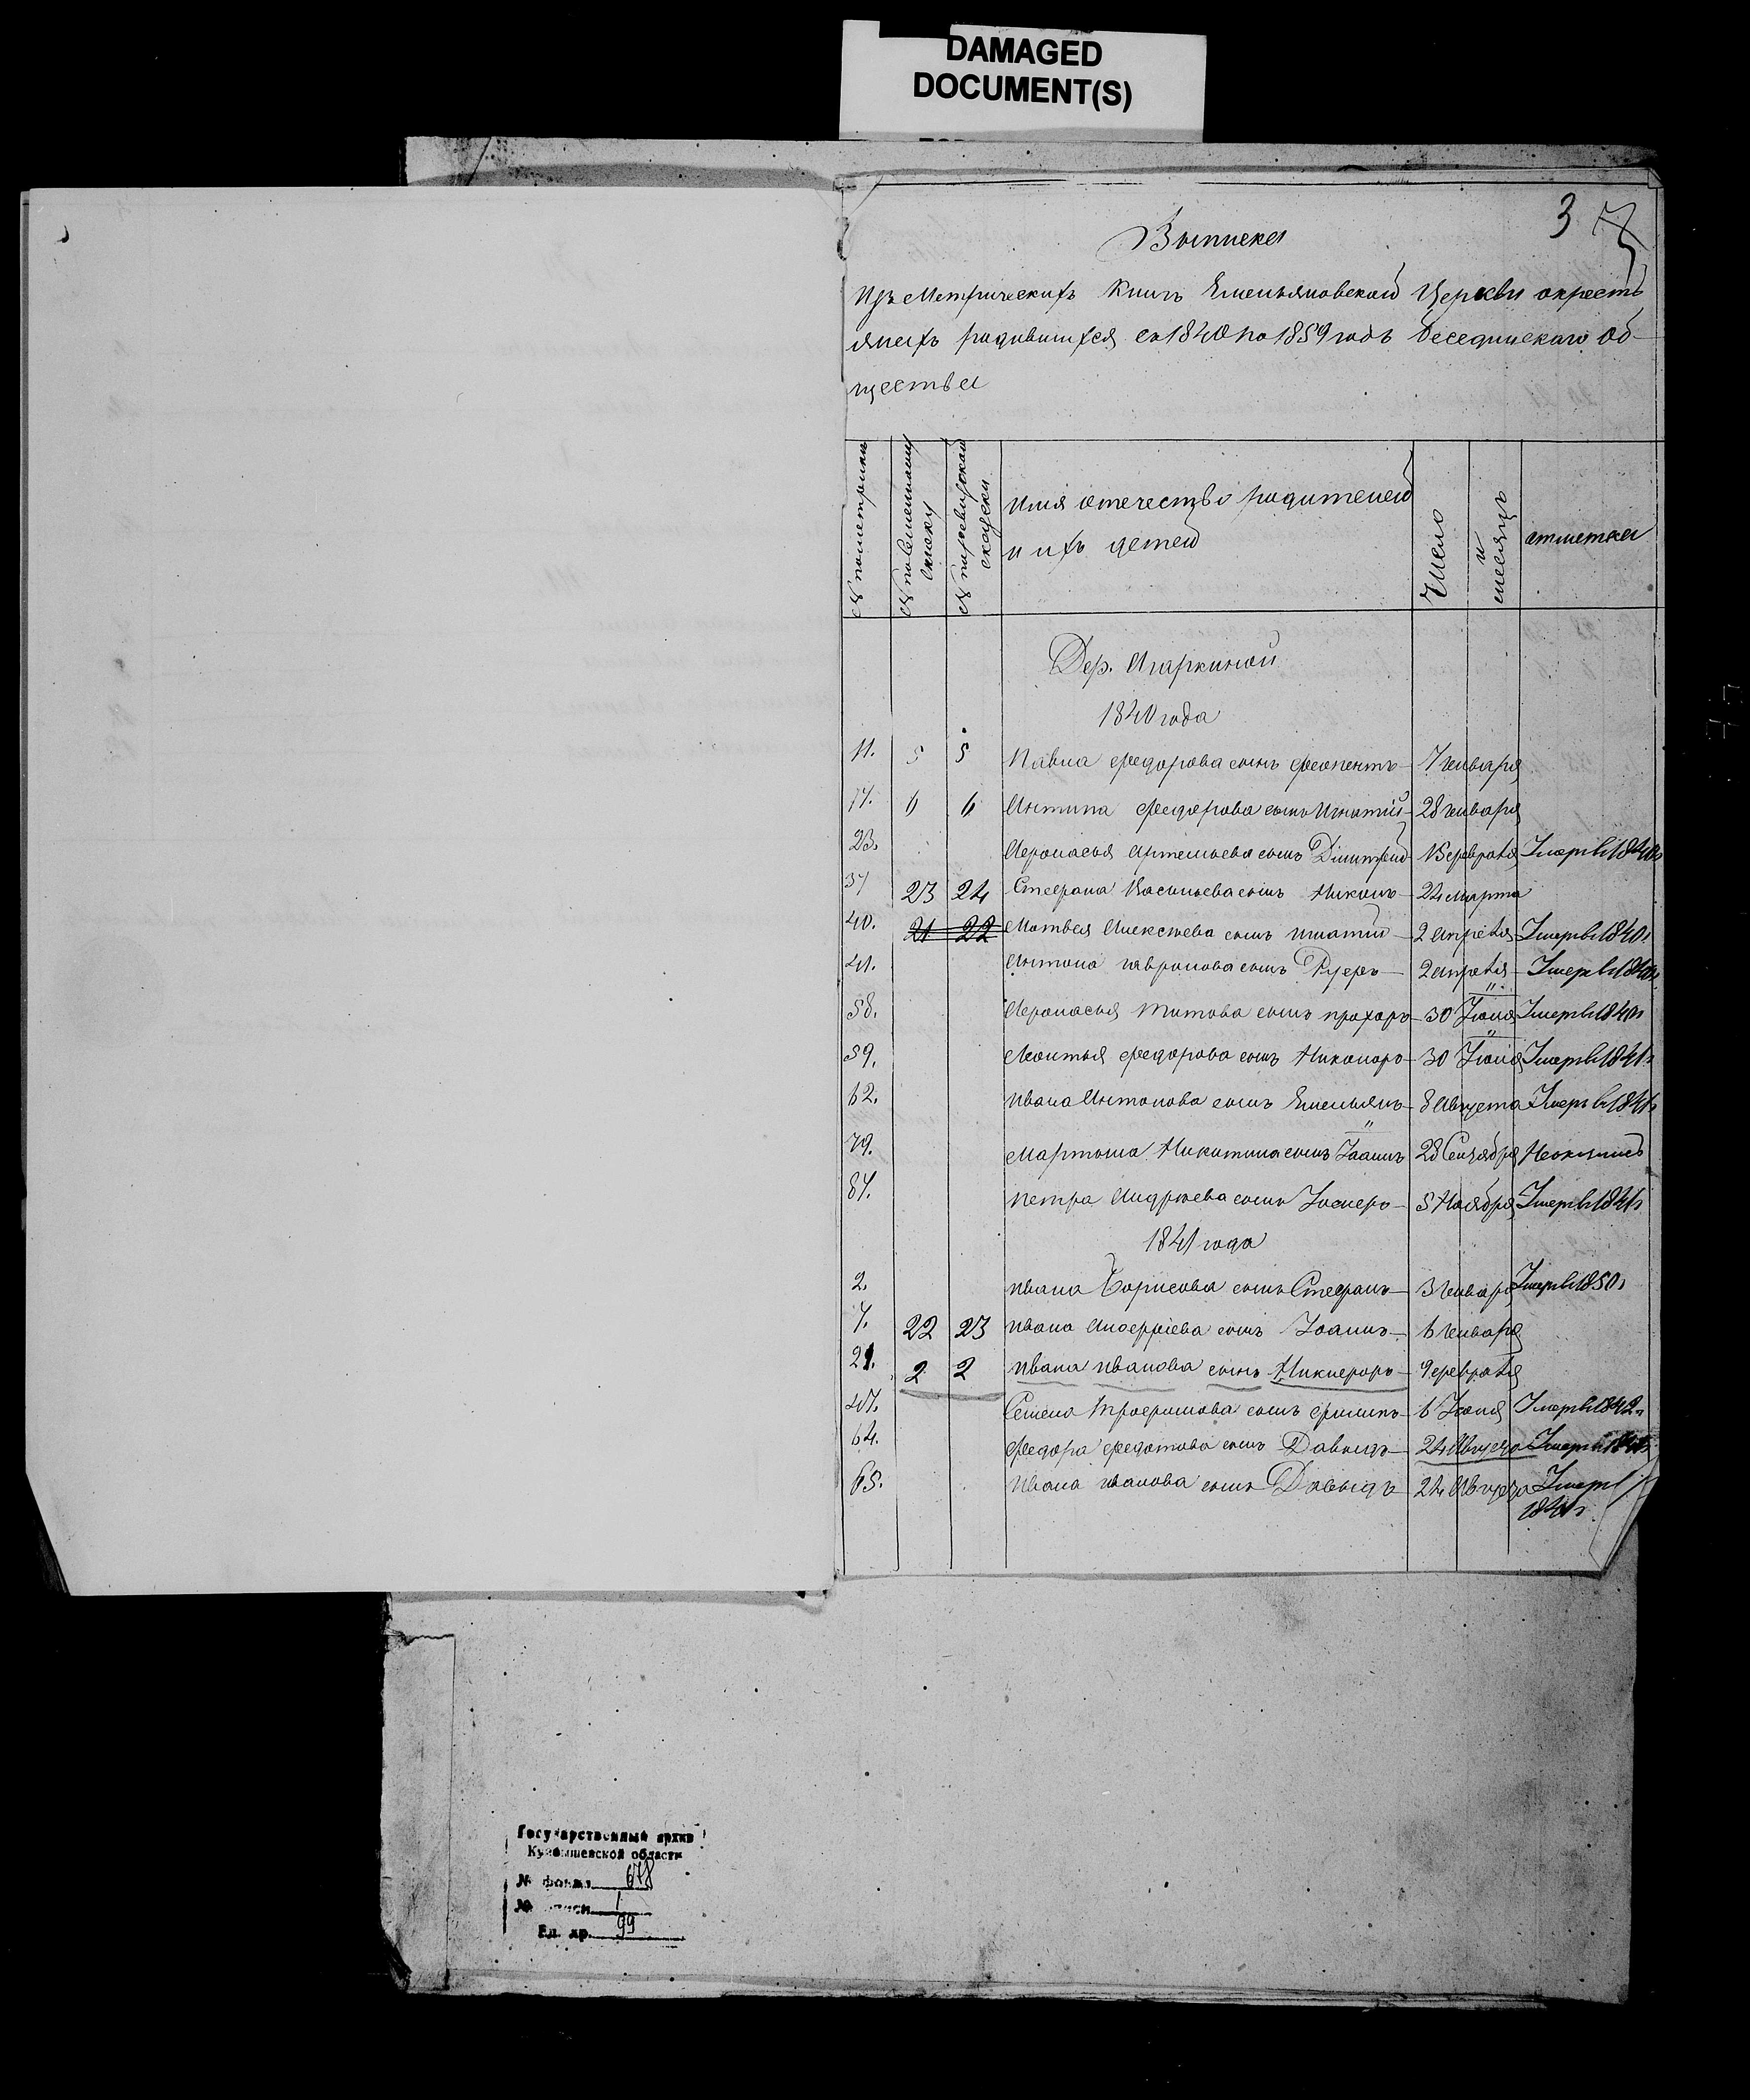 DAMAGED
DOCUMENT(S)
3
Выписка
Изъ Метрическихъ Книгъ Емельяновской Церкви окресть
янехъ родившихся со 1840 по 1859 годъ беседицскаго об-
щества
№ по метрики
№ по Семейному списку
№ по ревизской скаски
имя отечество родителей
и ихъ детей
Число
и месяцъ
отметка
Дер. Агаркиной
1840 года
11. 5 5 Павла федорова сынъ феопентъ - 7 генваря
17. 6 6 Антипа федорова сынъ Игнатий - 28 генваря
23. Афонасья Артемьева сынъ Димитрей 15 февраля Умеръ в 1840 г
37 23 24 Стефана Васильева сынъ Никонъ - 24 марта
40. 21 22 Матвея Алексеева сынъ игнатий - 2 апреля Умеръ в 1840 г
41. Антона гаврилова сынъ Руфъ - 2 апреля - Умеръ в 1840 г
58. Афонасья Титова сынъ прохоръ - 30 Іюня Умеръ в 1840 г
59. Леонтья федорова сынъ Никаноръ - 30 Іюня Умеръ в 1841 г
62. ивана Антонова сынъ Емельянъ - 8 Августа Умеръ в 1841 г
79. Мартына Никитина сынъ Іоаннъ 28 Сентября
87. петра Андреева сынъ Іосифъ - 5 Ноября Умеръ в 1841 г
1841 года
2. ивана борисова сынъ Стефанъ - 3 генваря Умеръ в 1850 г
7. 22 23 ивана сынъ Іоаннъ - 6 генваря
21. 2 2 ивана иванова сынъ Никифоръ - 9 февраля
47. Семена Трофимова сынъ филипъ - 6 Іюня Умеръ в 1842 г
64. федора федотова сынъ Давыдъ - 24 Августа Умеръ в
65. ивана иванова сынъ Давыдъ 24 Августа Умеръ в
1841 г
Государственный архив
Куйбышевской области
№ фонда 678
№ описи 1
Ед. хр. 99